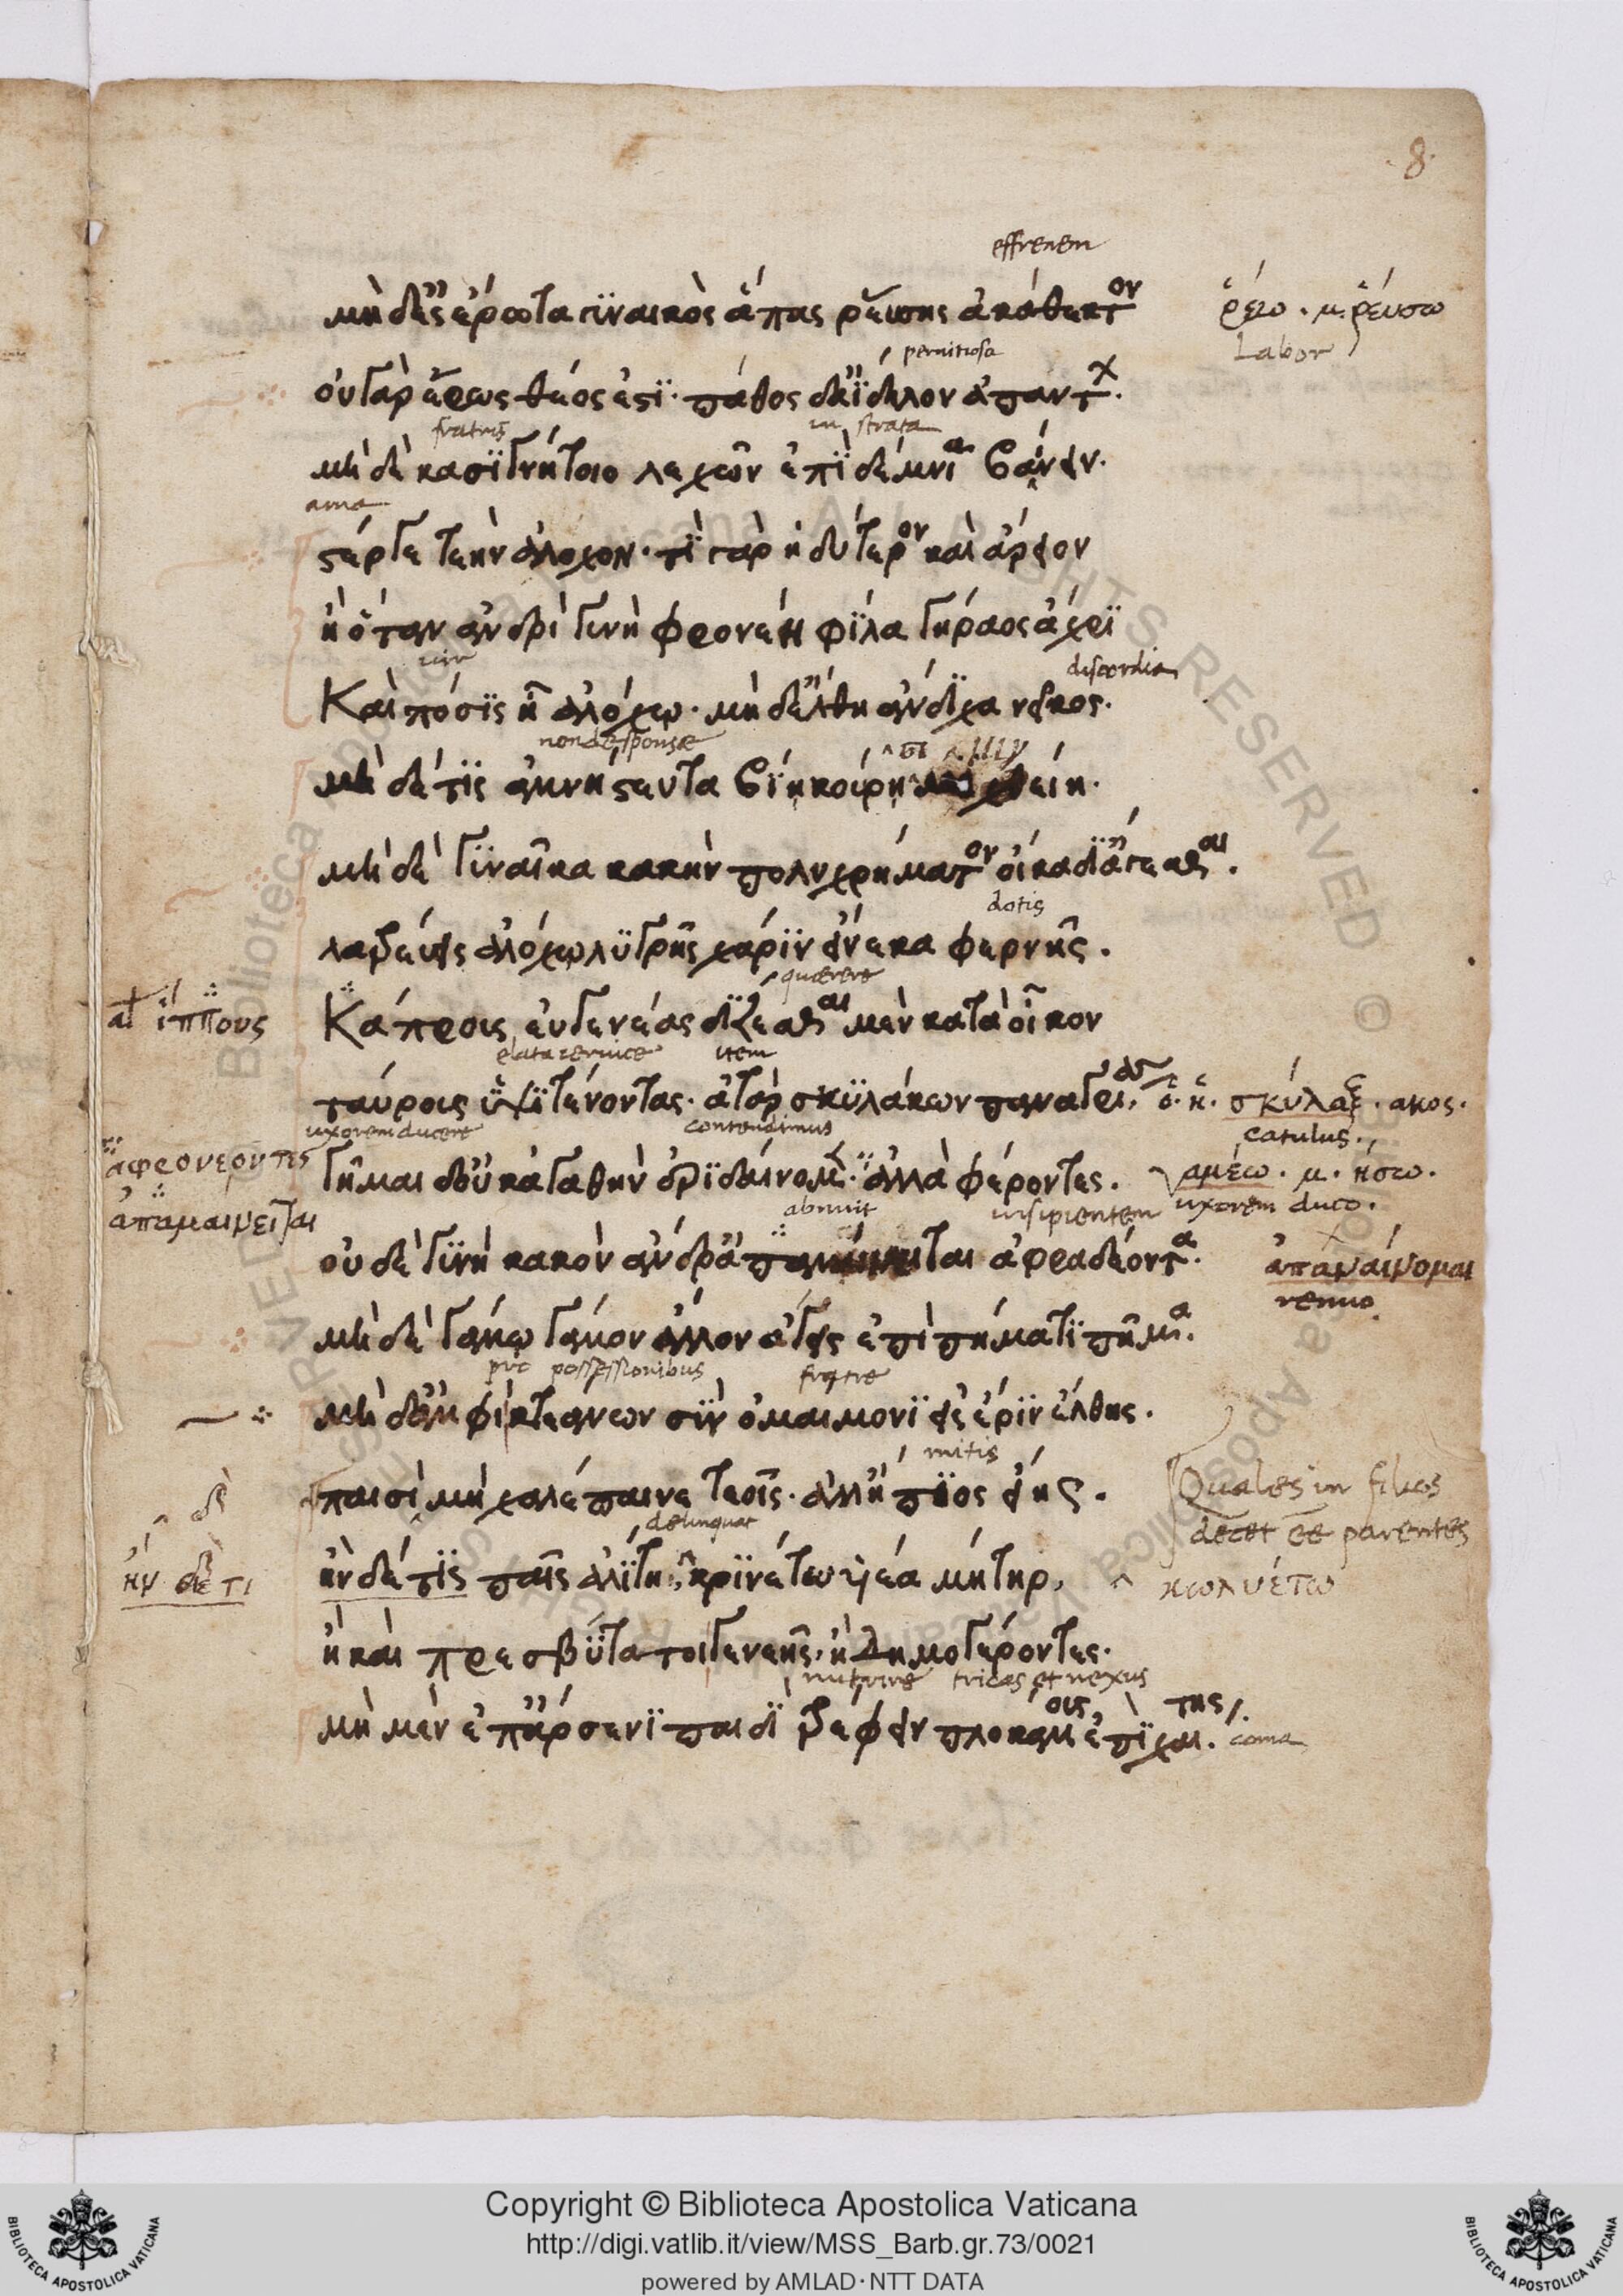 8
effrenem
μὴ δ' ἐς ἔρωτα γυναικὸς ἅπας ῥεύσης ἀκάθεκτον
ῥέω. μ. ῥεύσω
Labor
pernitiosa
οὐ γὰρ ἔρως θεός ἐστι· πάθος δ' ἀΐδηλον ἁπάντων.
fratris
in strata
μὴ δὲ κασιγνήτοιο λεχῶν ἐπὶ δέμνια βαίνειν.
ama
στέργε τεὴν ἄλοχον· τί γὰρ ἡδύτερον καὶ ἄρειον
ἢ ὅταν ἀνδρὶ γυνὴ φρονέῃ φίλα γήραος ἄχρι
vir
discordia
Καὶ πόσις ᾗ ἀλόχῳ· μὴ δ' ἔλθῃ ἄνδιχα νεῖκος.
non desponsae
μὴ δέ τις ἀμνήστευτα βίῃ κούρῃσι μιγείη.
μὴ δὲ γυναῖκα κακὴν πολυχρήματον οἴκαδ' ἄγεσθαι.
dotis
λατρεύεις ἀλόχῳ λυγρῆς χάριν εἵνεκα φερνῆς.
quaerere
αλ ἵππους
Κάπροις εὐγενέας δίζεσθαι μὲν κατὰ οἶκον
elata cervice
item
ταύροις ὑψιτένοντας· ἀτὰρ σκυλάκων παναγρεῖς
ὁ. ἡ. σκύλαξ. ακος.
uxorem ducere
contendimus
catulus.
ἀφρονέοντες
γῆμαι δ' οὐκ ἀγαθὴν ἐριδαίνομεν· ἀλλὰ φέροντες.
γαμέω. μ. ήσω.
ἀπαμαίνεται
abnuit
insipientem
uxorem duco.
οὐδὲ γυνὴ κακὸν ἄνδρ' ἀπαναίνεται ἀφραδέοντα.
ἀπαναίνομαι
renuo
μὴ δὲ γάμῳ γάμον ἄλλον ἄγεις ἐπὶ πήματι πῆμα.
pro possessionibus
fratre
μὴ δ' ἀμφὶ κτεάνων σὺν ὁμαίμονι εἰς ἔριν ἔλθης.
mitis
παισὶ μὴ χαλέπαινε τεοῖς· ἀλλ' ἤπιος εἴης.
Quales in filios
decet ee parentes
delinquat
δὲ
ἢν δέ τι
ἢν δέ τις παῖς ἀλίτῃ, κρινέτω υἱέα μήτηρ,
κωλυέτω
ἢ καὶ πρεσβύτατοι γενεῆς, ἢ δημογέροντες.
nutrire
trices et nexus
μὴ μὲν ἐπ' ἄρσενι παιδὶ τρέφειν πλοκάμοις ἐπὶ χαίτης.
coma
Copyright © Biblioteca Apostolica Vaticana
http://digi.vatlib.it/view/MSS_Barb.gr.73/0021
powered by AMLAD·NTT DATA
BIBLIOTECA APOSTOLICA VATICANA
BIBLIOTECA APOSTOLICA VATICANA